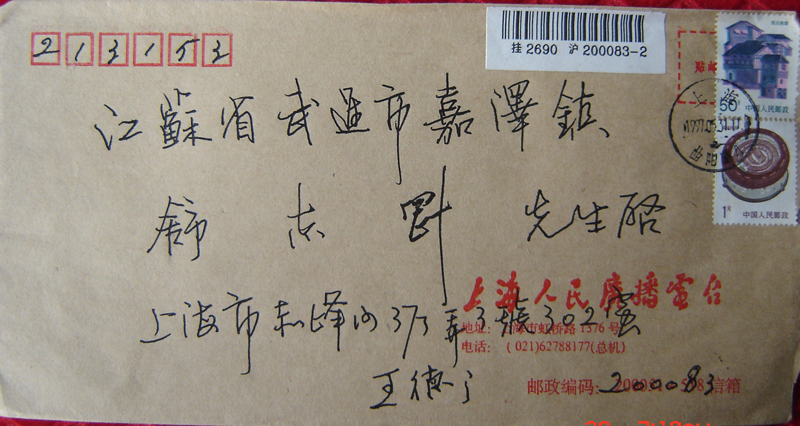 213153
挂 2690 沪 200083-2
贴邮
50 中国人民邮政
上海
1997.05.31.17
曲阳
1元 中国人民邮政
江蘇省武進市嘉澤鎮
舒志剛 先生啓
上海人民廣播電台
上海市赤峰路373弄3號302室
地址: 上海市虹桥路1376号
电话: (021)62788177(总机)
王德
邮政编码: 200083 信箱